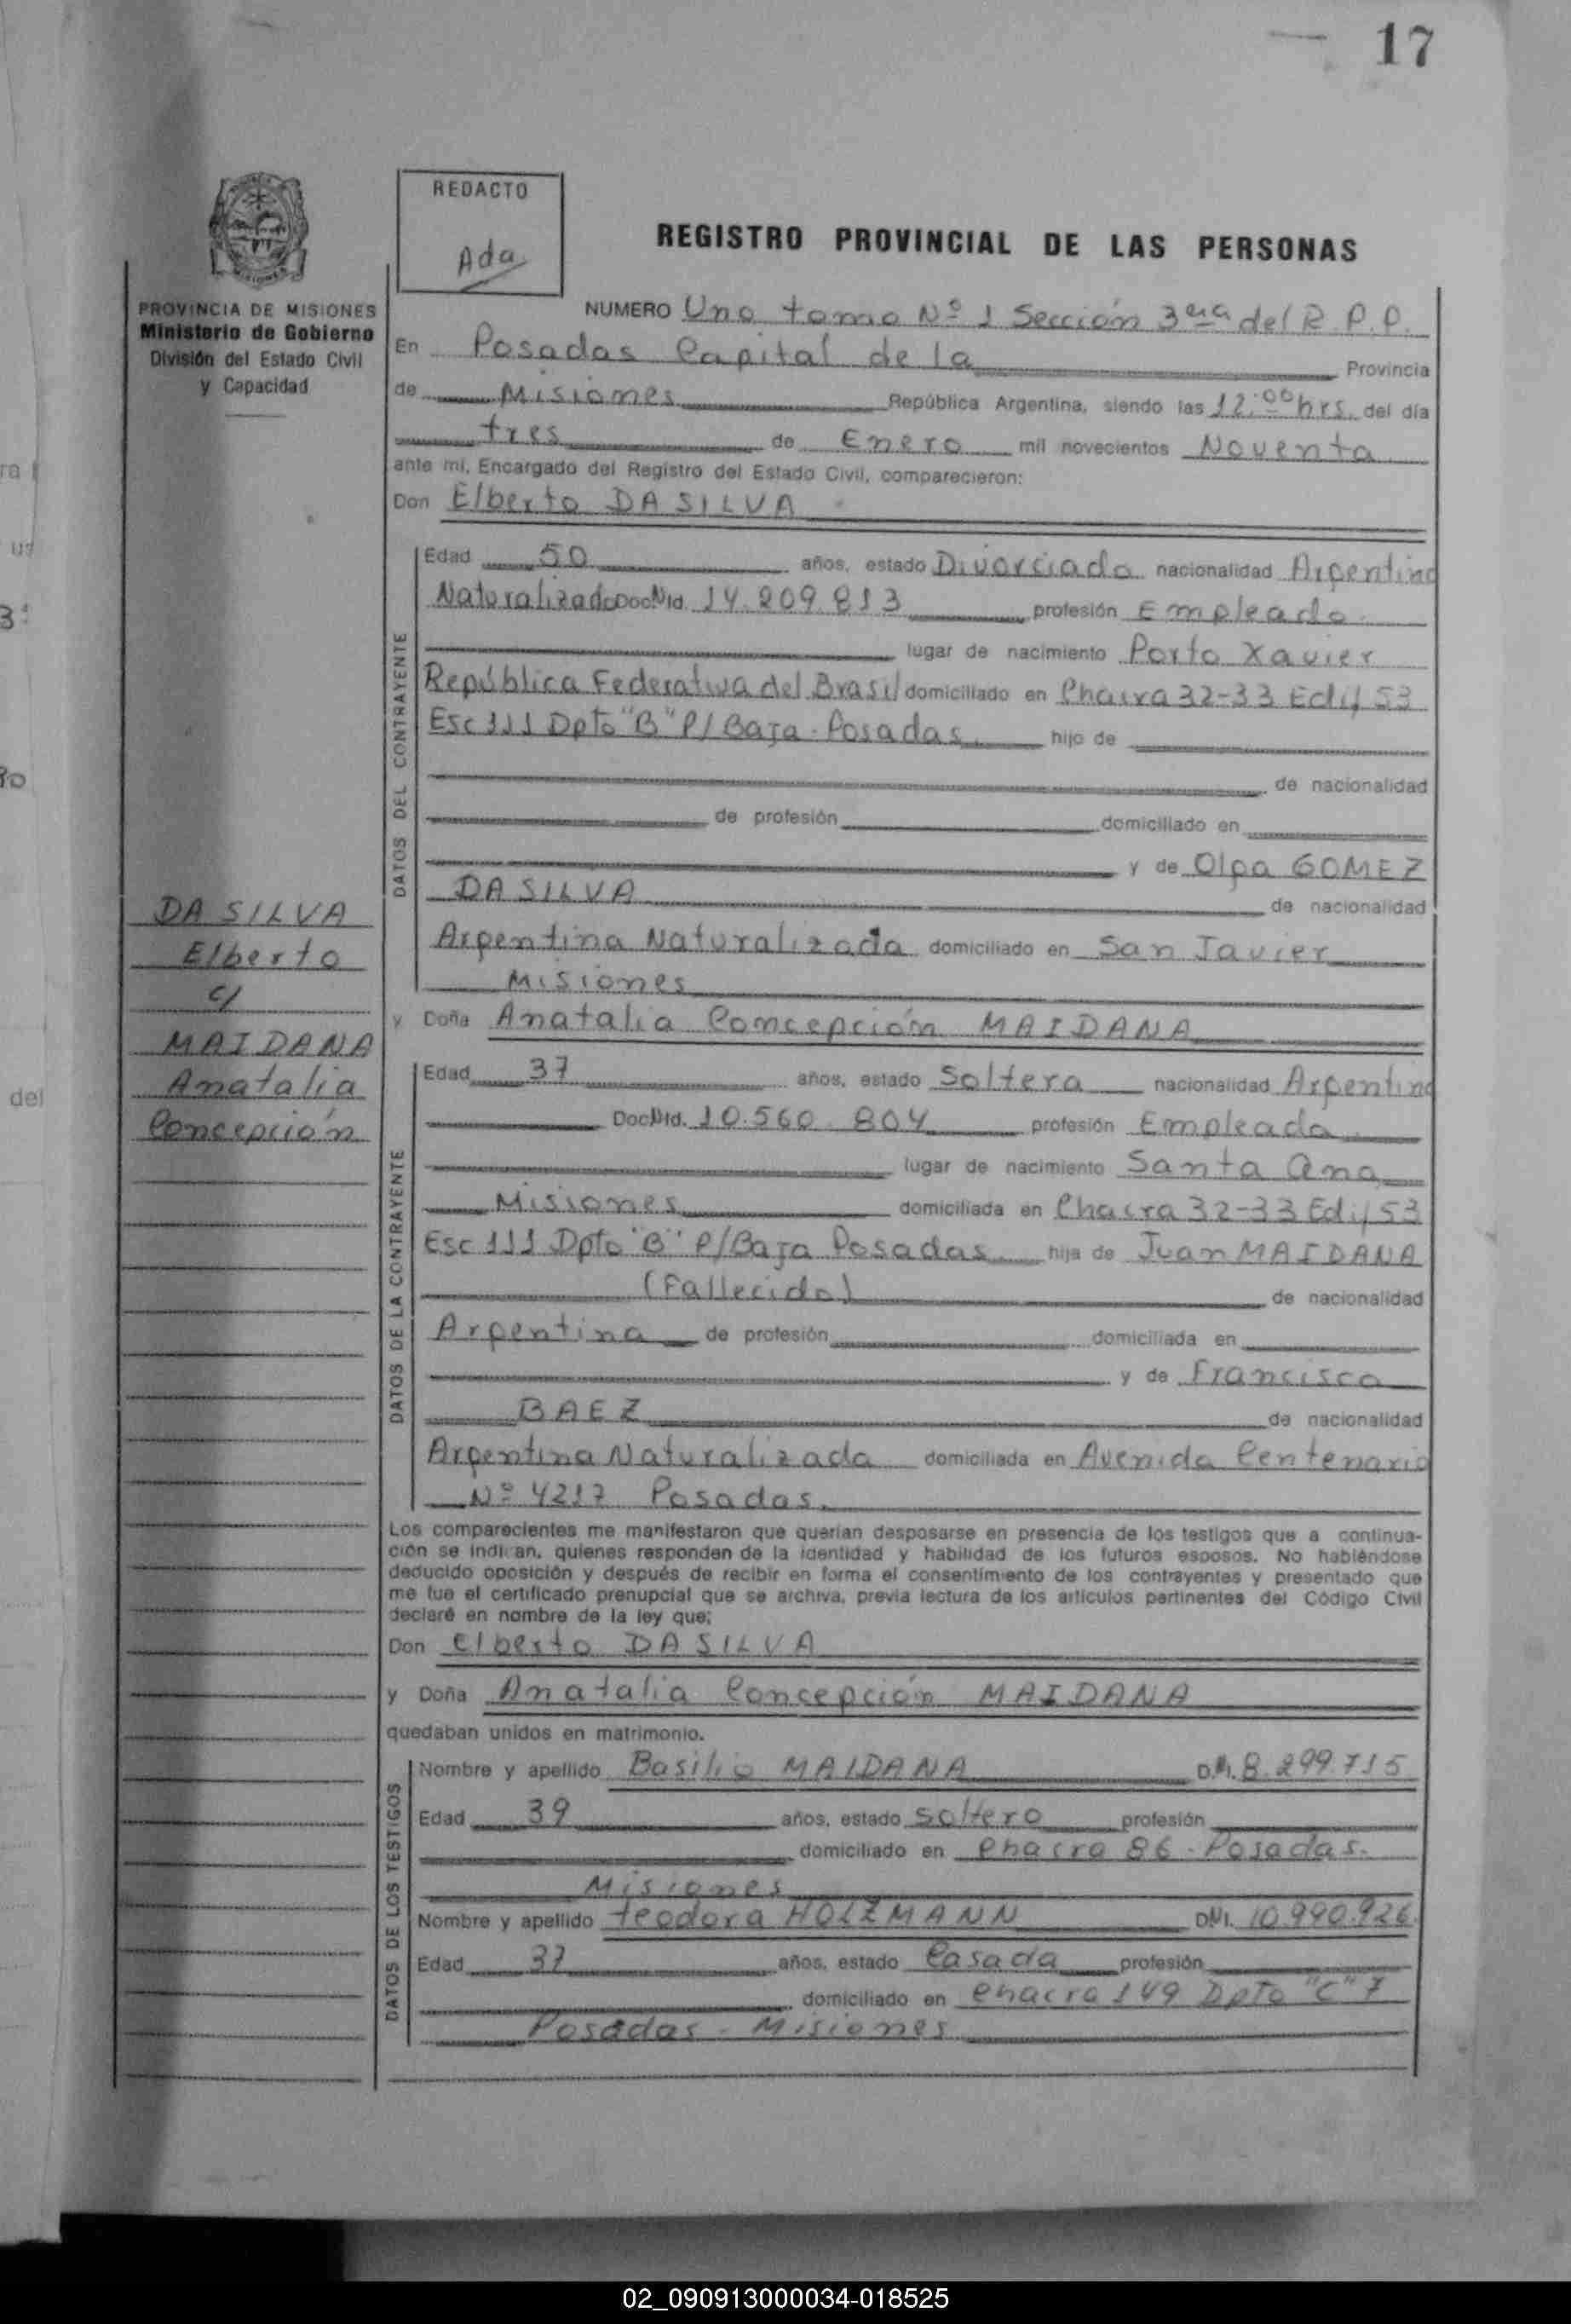 17
REDACTO
Ada
REGISTRO PROVINCIAL DE LAS PERSONAS
PROVINCIA DE MISIONES
Ministerio de Gobierno
División del Estado Civil
y Capacidad
NUMERO Uno tomo Nº 1 Sección 3era del R.P.P.
En Posadas Capital de la Provincia
de Misiones República Argentina, siendo las 12:00 hrs. del día
tres de Enero mil novecientos Noventa
ante mí, Encargado del Registro del Estado Civil, comparecieron:
Don Elberto DA SILVA
DATOS DEL CONTRAYENTE
Edad 50 años, estado Divorciado nacionalidad Argentino
Naturalizado Doc. Nid. 14.209.813 profesión Empleado
lugar de nacimiento Porto Xavier
República Federativa del Brasil domiciliado en Chacra 32-33 Edif 53
Esc 111 Dpto "B" P/Baja - Posadas. hijo de
de nacionalidad
de profesión domiciliado en
y de Olga GOMEZ
DA SILVA de nacionalidad
Argentina Naturalizada domiciliado en San Javier
Misiones
y Doña Anatalia Concepción MAIDANA
DA SILVA
Elberto
c/
MAIDANA
Anatalia
Concepción
DATOS DE LA CONTRAYENTE
Edad 37 años, estado Soltera nacionalidad Argentina
Doc. Nid. 10.560.804 profesión Empleada
lugar de nacimiento Santa Ana
Misiones domiciliada en Chacra 32-33 Edif 53
Esc 111 Dpto "B" P/Baja Posadas hija de Juan MAIDANA
(Fallecido) de nacionalidad
Argentina de profesión domiciliada en
y de Francisca
BAEZ de nacionalidad
Argentina Naturalizada domiciliada en Avenida Centenario
Nº 4217 Posadas.
Los comparecientes me manifestaron que querían desposarse en presencia de los testigos que a continua-
ción se indican, quienes responden de la identidad y habilidad de los futuros esposos. No habiéndose
deducido oposición y después de recibir en forma el consentimiento de los contrayentes y presentado que
me fue el certificado prenupcial que se archiva, previa lectura de los artículos pertinentes del Código Civil
declaré en nombre de la ley que;
Don Elberto DA SILVA
y Doña Anatalia Concepción MAIDANA
quedaban unidos en matrimonio.
DATOS DE LOS TESTIGOS
Nombre y apellido Basilio MAIDANA D.N.I. 8.299.715
Edad 39 años, estado soltero profesión
domiciliado en Chacra 86 - Posadas.
Misiones
Nombre y apellido teodora HOLZMANN DNI. 10.990.926.
Edad 37 años, estado Casada profesión
domiciliado en Chacra 149 Dpto "C" 7
Posadas - Misiones
02_090913000034-018525